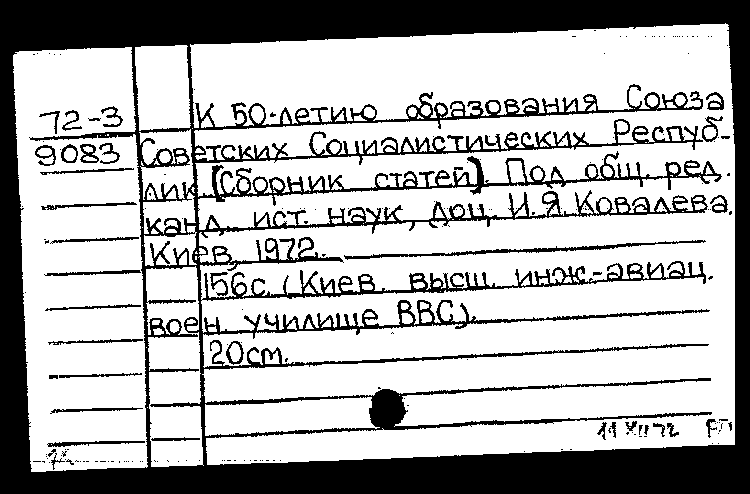 72-3 К 50-летию образования Союза
9083 Советских Социалистических Респуб-
лик [Сборник статей]. Под общ. ред.
канд. ист. наук, доц. И.Я. Ковалева.
Киев, 1972.
156с. (Киев. высш. инж.-авиац.
воен. училище ВВС).
20см.
11 XII 72